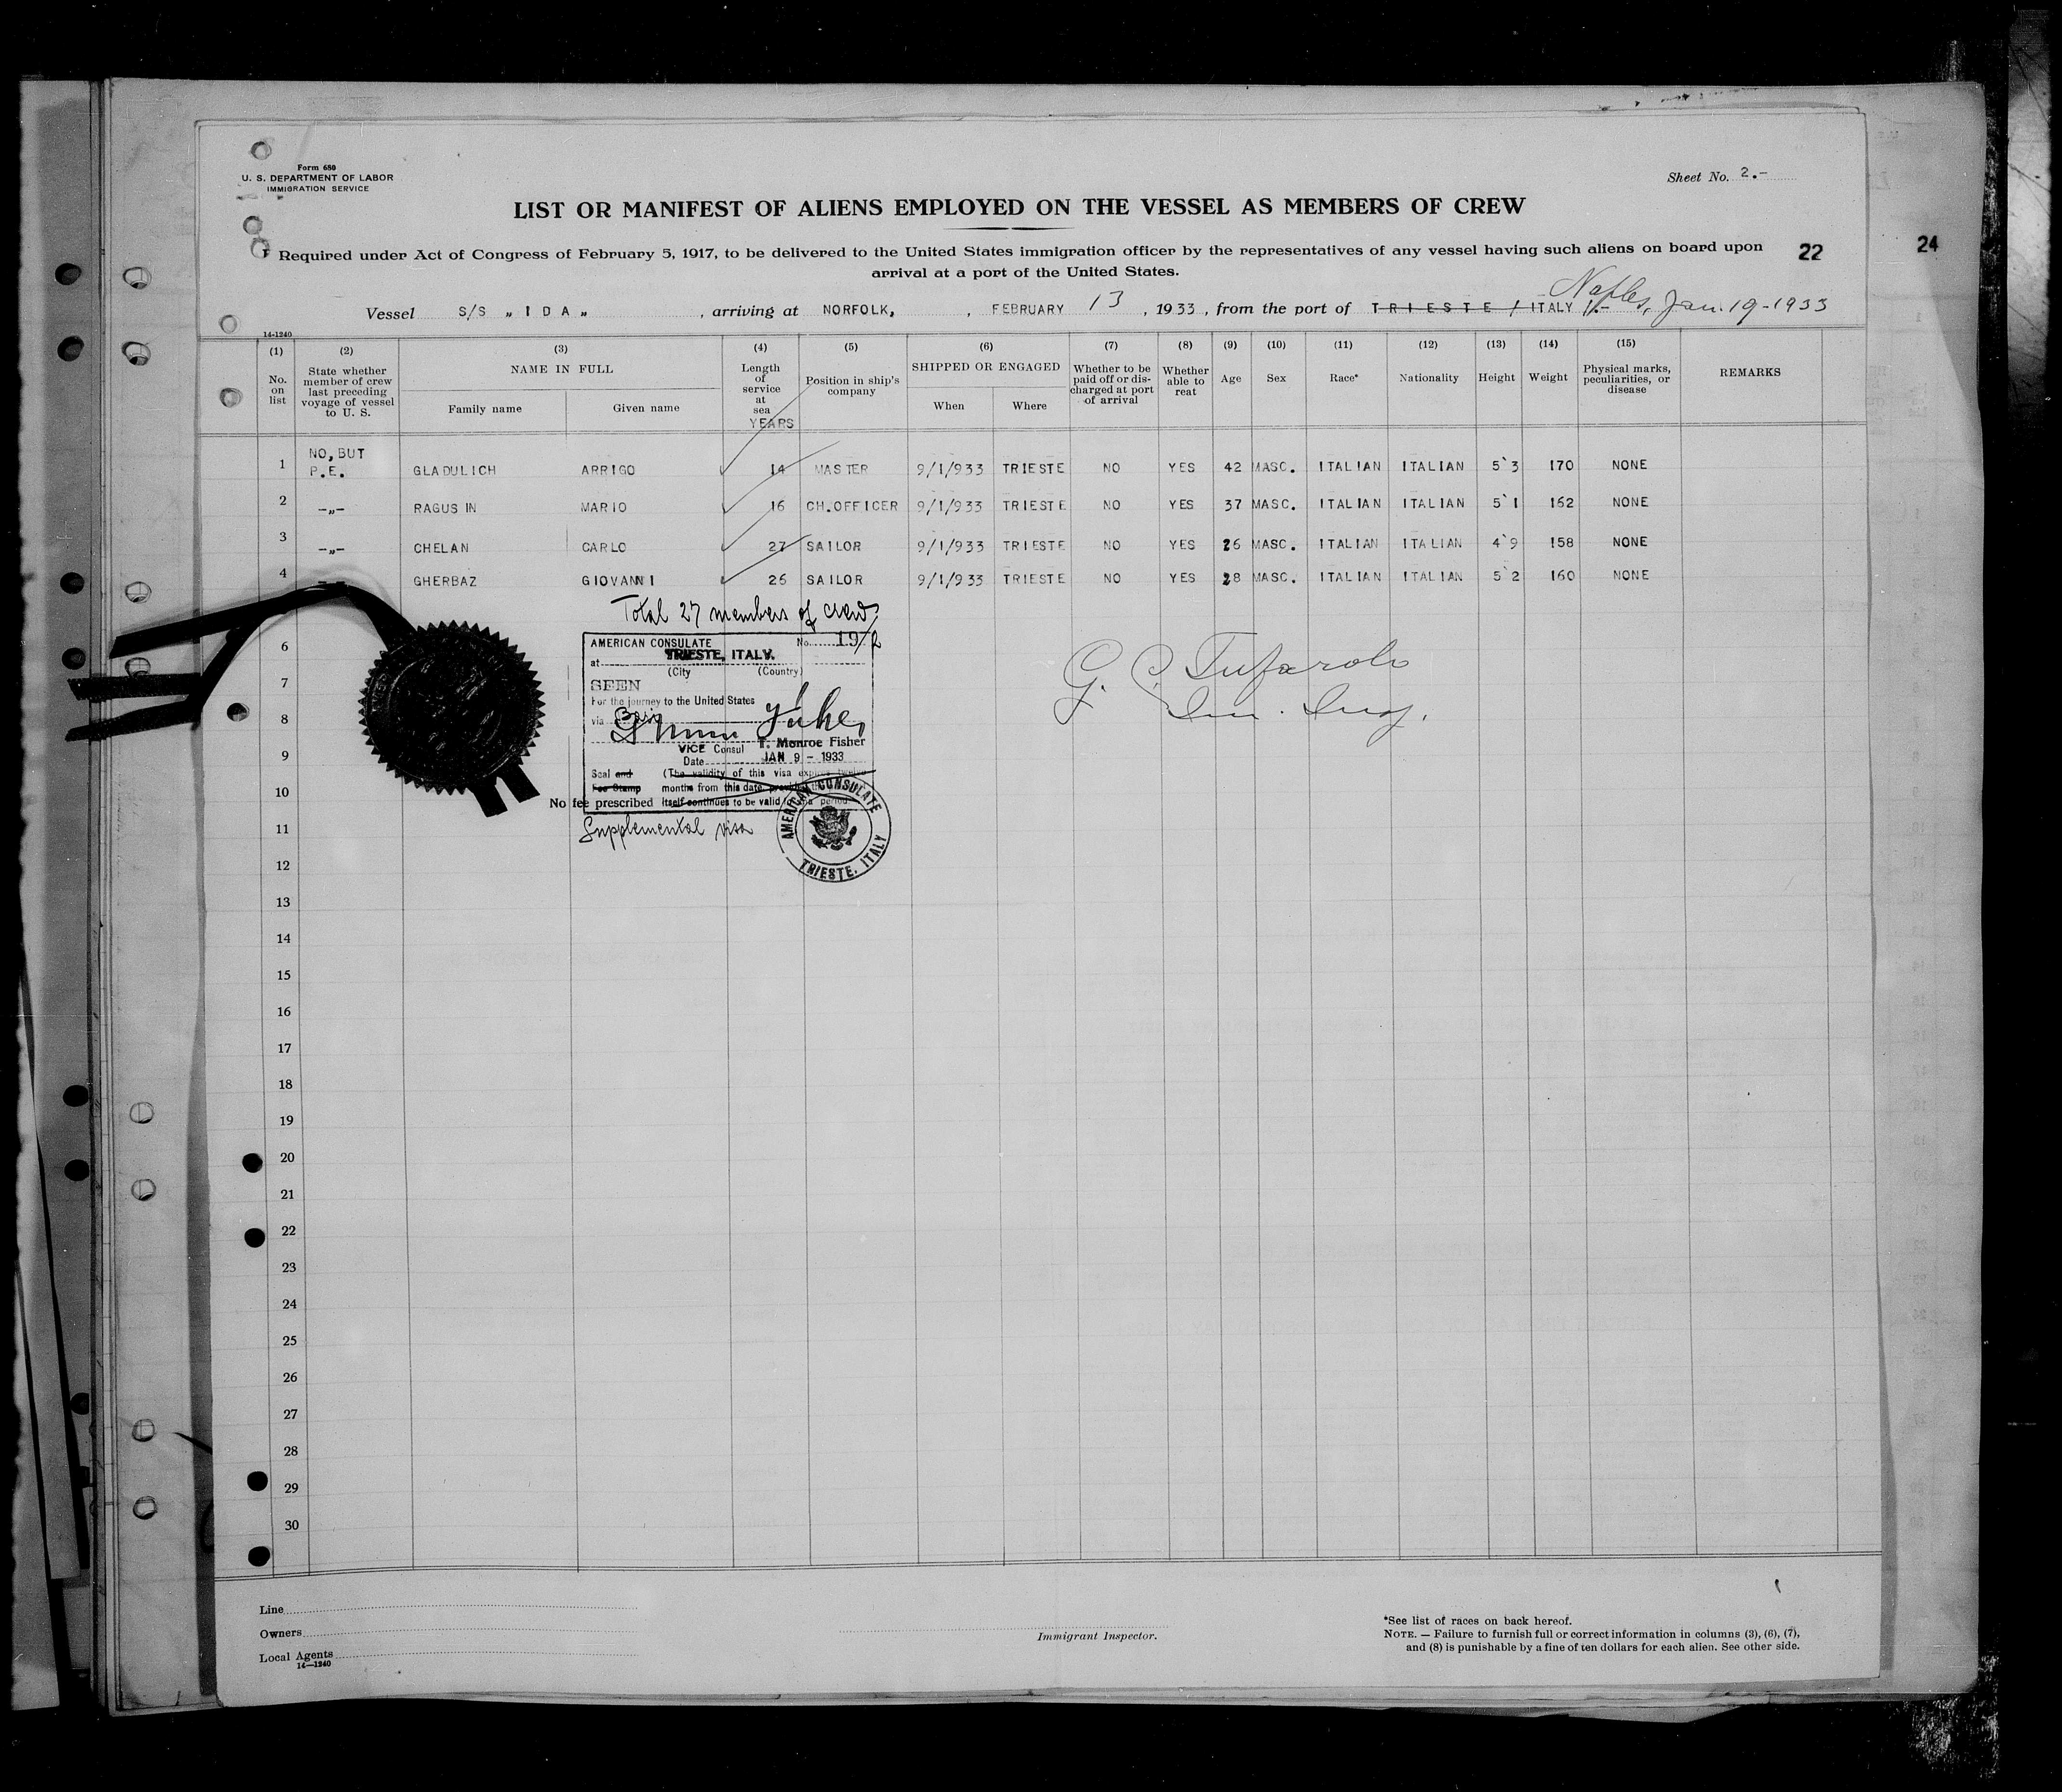 Form 680
U. S. DEPARTMENT OF LABOR
IMMIGRATION SERVICE
Sheet No. 2.-
LIST OR MANIFEST OF ALIENS EMPLOYED ON THE VESSEL AS MEMBERS OF CREW
Required under Act of Congress of February 5, 1917, to be delivered to the United States immigration officer by the representatives of any vessel having such aliens on board upon
arrival at a port of the United States.
22
24
Vessel S/S „ I D A „ , arriving at NORFOLK, , FEBRUARY 13 , 1933 , from the port of TRIESTE / ITALY /.- Naples, Jan. 19-1933
14-1240
(1) (2) (3) (4) (5) (6) (7) (8) (9) (10) (11) (12) (13) (14) (15)
No. on list
State whether member of crew last preceding voyage of vessel to U. S.
NAME IN FULL
Family name Given name
Length of service at sea
YEARS
Position in ship's company
SHIPPED OR ENGAGED
When Where
Whether to be paid off or discharged at port of arrival
Whether able to reat
Age
Sex
Race*
Nationality
Height
Weight
Physical marks, peculiarities, or disease
REMARKS
1 NO, BUT P.E. GLADULICH ARRIGO 14 MASTER 9/1/933 TRIESTE NO YES 42 MASC. ITALIAN ITALIAN 5`3 170 NONE
2 -„- RAGUSIN MARIO 16 CH.OFFICER 9/1/933 TRIESTE NO YES 37 MASC. ITALIAN ITALIAN 5`1 162 NONE
3 -„- CHELAN CARLO 27 SAILOR 9/1/933 TRIESTE NO YES 26 MASC. ITALIAN ITALIAN 4`9 158 NONE
4 GHERBAZ GIOVANNI 26 SAILOR 9/1/933 TRIESTE NO YES 28 MASC. ITALIAN ITALIAN 5`2 160 NONE
Total 27 members of crew
AMERICAN CONSULATE No.
at TRIESTE, ITALY.
(City (Country)
SEEN
For the journey to the United States
via
VICE Consul T. Monroe Fisher
Date JAN 9 - 1933
Seal and (The validity of this visa expires twelve
Fee Stamp months from this date
No fee prescribed itself continues to be valid period
Supplemental visa
AMERICAN CONSULATE
TRIESTE, ITALY
G. C. Tufarolo
Im. Insp.
6
7
8
9
10
11
12
13
14
15
16
17
18
19
20
21
22
23
24
25
26
27
28
29
30
Line
Owners
Local Agents
14—1240
Immigrant Inspector.
*See list of races on back hereof.
NOTE. — Failure to furnish full or correct information in columns (3), (6), (7),
and (8) is punishable by a fine of ten dollars for each alien. See other side.